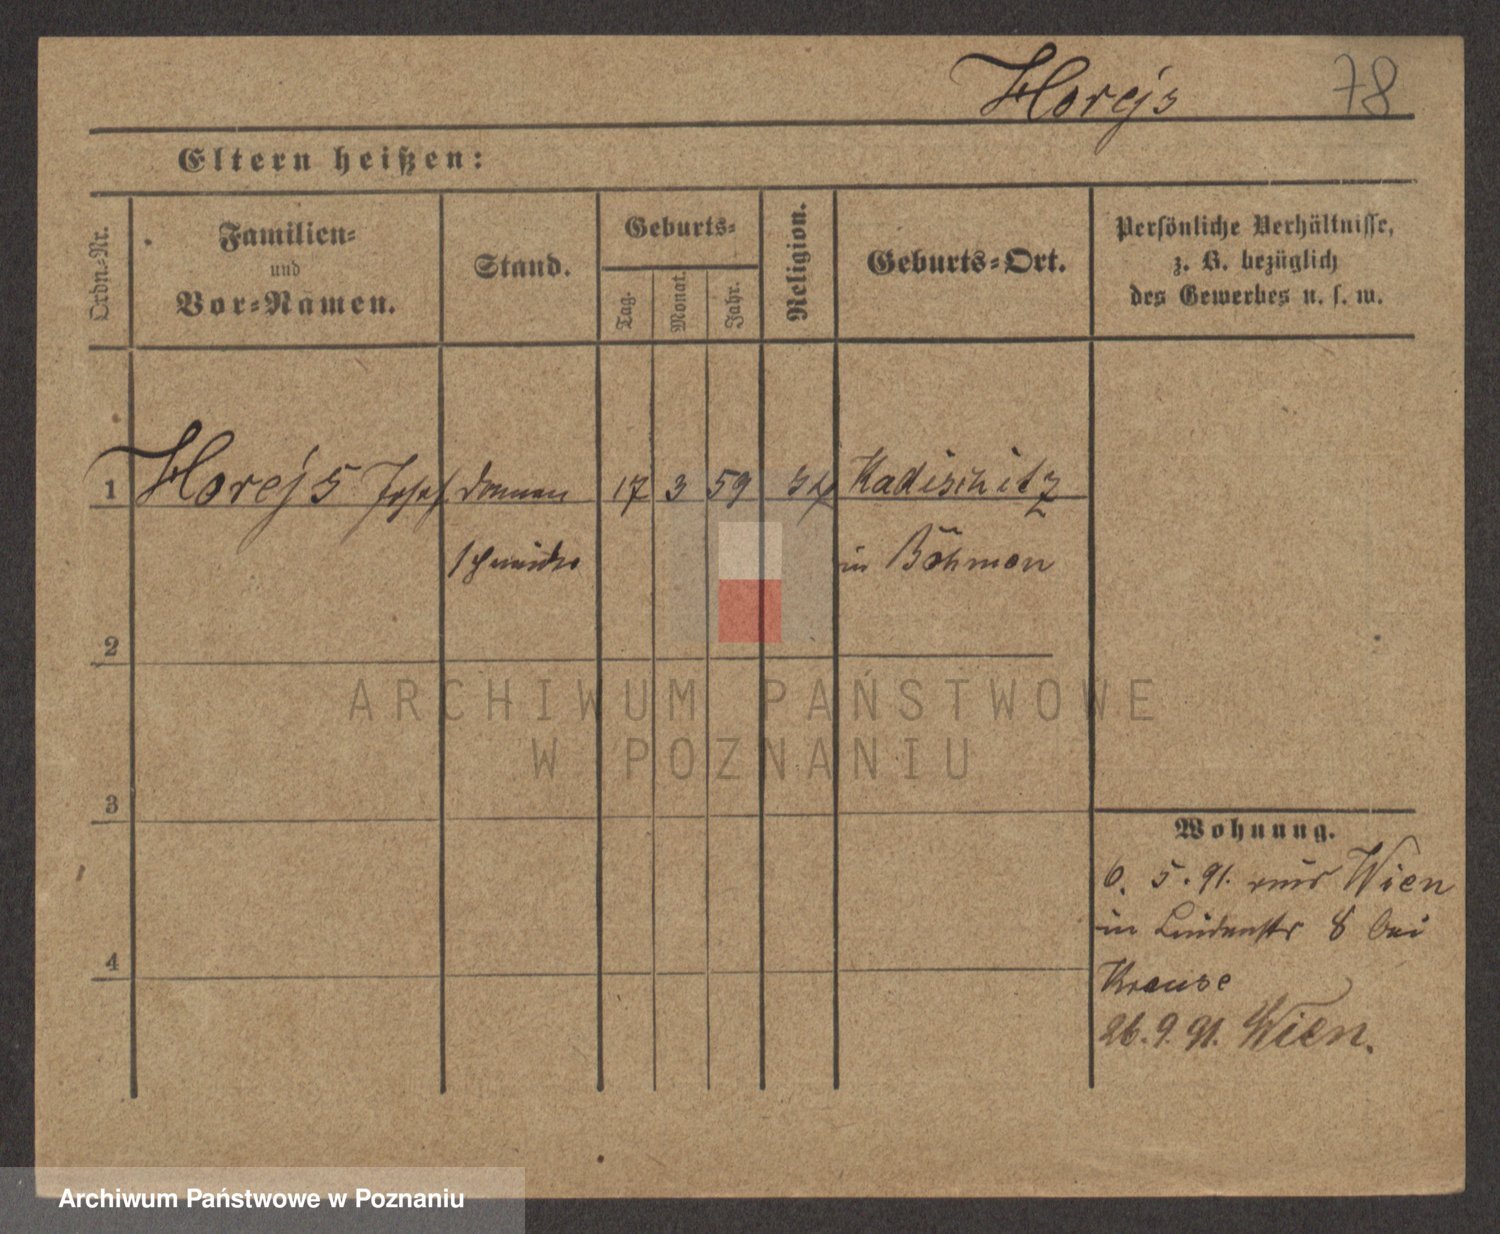 Horejs 78
Eltern heißen:
Ordn.-Nr.
Familien-
und
Vor-Namen.
Stand.
Geburts-
Tag.
Monat.
Jahr.
Religion.
Geburts-Ort.
Persönliche Verhältnisse,
z. B. bezüglich
des Gewerbes u. s. w.
1 Horejs Josef Damen 17 3 59 Kadischitz
schneider in Böhmen
2
ARCHIWUM PAŃSTWOWE
W POZNANIU
3
Wohnung.
6. 5. 91. aus Wien
in Lindenstr 8 bei
4
Krause
26. 9. 91. Wien.
Archiwum Państwowe w Poznaniu